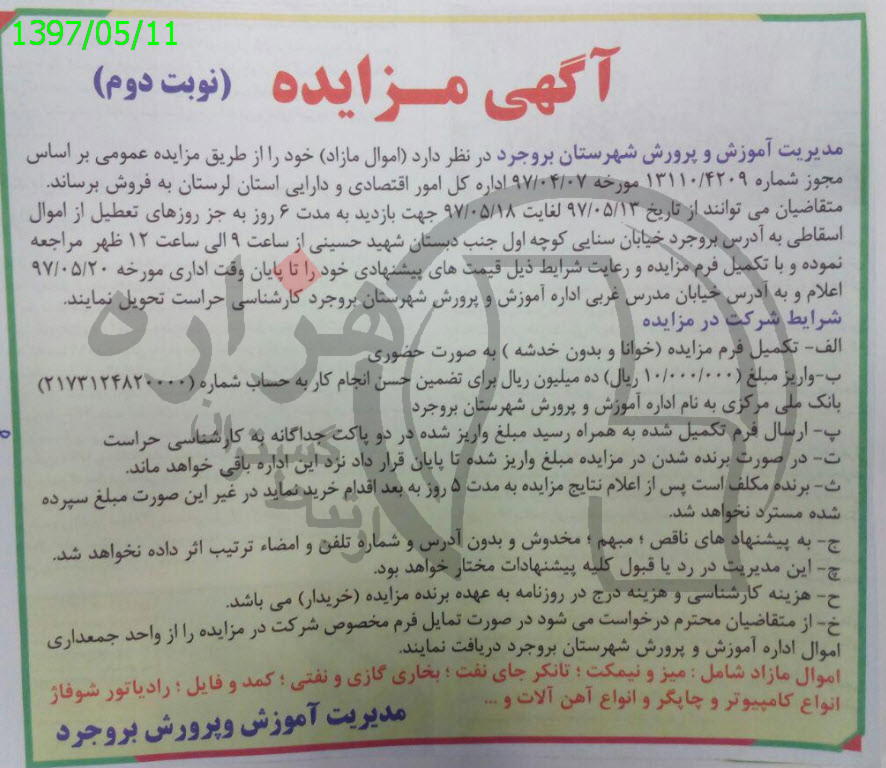 1397/05/11
آگهی مزایده (نوبت دوم)
مدیریت آموزش و پرورش شهرستان بروجرد در نظر دارد (اموال مازاد) خود را از طریق مزایده عمومی بر اساس
مجوز شماره ۱۳۱۱۰/۴۲۰۹ مورخه ۹۷/۰۴/۰۷ اداره کل امور اقتصادی و دارایی استان لرستان به فروش برساند.
متقاضیان می توانند از تاریخ ۹۷/۰۵/۱۳ لغایت ۹۷/۰۵/۱۸ جهت بازدید به مدت ۶ روز به جز روزهای تعطیل از اموال
اسقاطی به آدرس بروجرد خیابان سنایی کوچه اول جنب دبستان شهید حسینی از ساعت ۹ الی ساعت ۱۲ ظهر مراجعه
نموده و با تکمیل فرم مزایده و رعایت شرایط ذیل قیمت های پیشنهادی خود را تا پایان وقت اداری مورخه ۹۷/۰۵/۲۰
اعلام و به آدرس خیابان مدرس غربی اداره آموزش و پرورش شهرستان بروجرد کارشناسی حراست تحویل نمایند.
شرایط شرکت در مزایده
الف- تکمیل فرم مزایده (خوانا و بدون خدشه ) به صورت حضوری
ب-واریز مبلغ (۱۰/۰۰۰/۰۰۰ ریال) ده میلیون ریال برای تضمین حسن انجام کار به حساب شماره (۲۱۷۳۱۲۴۸۲۰۰۰۰)
بانک ملی مرکزی به نام اداره آموزش و پرورش شهرستان بروجرد
پ- ارسال فرم تکمیل شده به همراه رسید مبلغ واریز شده در دو پاکت جداگانه به کارشناسی حراست
ت- در صورت برنده شدن در مزایده مبلغ واریز شده تا پایان قرار داد نزد این اداره باقی خواهد ماند.
ث- برنده مکلف است پس از اعلام نتایج مزایده به مدت ۵ روز به بعد اقدام خرید نماید در غیر این صورت مبلغ سپرده
شده مسترد نخواهد شد.
ج- به پیشنهاد های ناقص ؛ مبهم ؛ مخدوش و بدون آدرس و شماره تلفن و امضاء ترتیب اثر داده نخواهد شد.
چ- این مدیریت در رد یا قبول کلیه پیشنهادات مختار خواهد بود.
ح- هزینه کارشناسی و هزینه درج در روزنامه به عهده برنده مزایده (خریدار) می باشد.
خ- از متقاضیان محترم درخواست می شود در صورت تمایل فرم مخصوص شرکت در مزایده را از واحد جمعداری
اموال اداره آموزش و پرورش شهرستان بروجرد دریافت نمایند.
اموال مازاد شامل : میز و نیمکت ؛ تانکر جای نفت ؛ بخاری گازی و نفتی ؛ کمد و فایل ؛ رادیاتور شوفاژ
انواع کامپیوتر و چاپگر و انواع آهن آلات و ...
مدیریت آموزش وپرورش بروجرد
هزاره